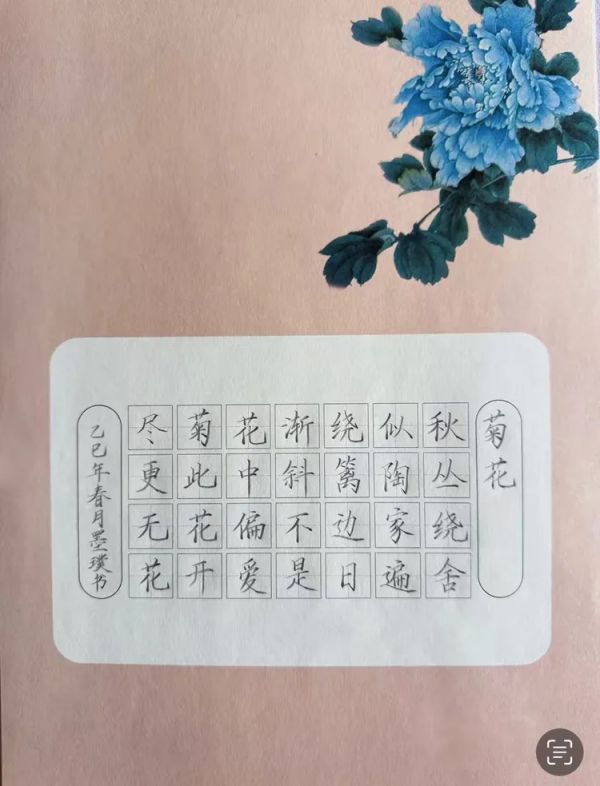 菊花
秋丛绕舍
似陶家遍
绕篱边日
渐斜不是
花中偏爱
菊此花开
尽更无花
乙巳年春月墨璞书